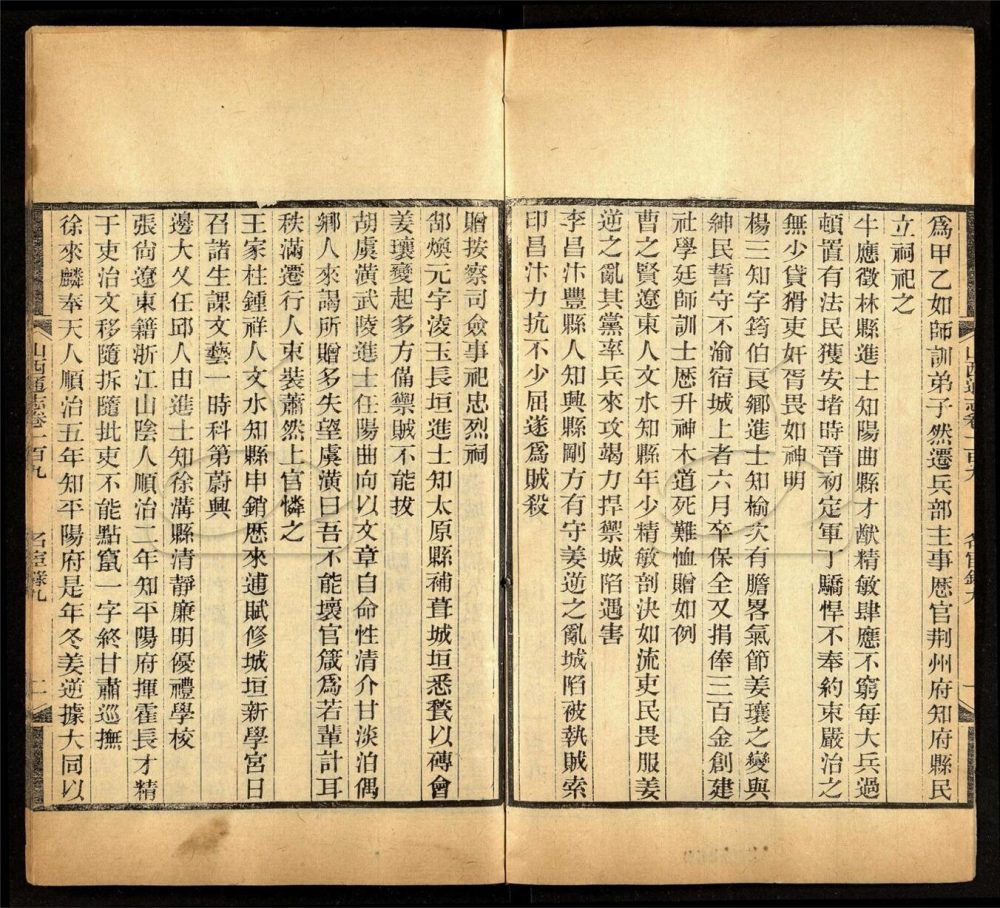 為甲乙如師訓弟子然遷兵部主事歷官荆州府知府縣民
立祠祀之
牛應徵林縣進士知陽曲縣才猷精敏肆應不窮每大兵過
頓置有法民獲安堵時晉初定軍丁驕悍不奉約束嚴治之
無少貸猾吏奸胥畏如神明
楊三知字筠伯良鄉進士知榆次有膽畧氣節姜瓖之變與
紳民誓守不渝宿城上者六月卒保全又捐俸三百金創建
社學廷師訓士歷升神木道死難恤贈如例
曹之賢遼東人文水知縣年少精敏剖決如流吏民畏服姜
逆之亂其黨率兵來攻竭力捍禦城陷遇害
李昌汴豐縣人知興縣剛方有守姜逆之亂城陷被執賊索
印昌汴力抗不少屈遂為賊殺
贈按察司僉事祀忠烈祠
郜煥元字淩玉長垣進士知太原縣補葺城垣悉甃以磚會
姜瓖變起多方備禦賊不能拔
胡虞潢武陵進士任陽曲向以文章自命性清介甘淡泊偶
鄉人來謁所贈多失望虞潢曰吾不能壞官箴為若輩計耳
秩滿遷行人束裝蕭然上官憐之
王家柱鍾祥人文水知縣申銷歷來逋賦修城垣新學宮日
召諸生課文藝一時科第蔚興
邊大乂任邱人由進士知徐溝縣清靜廉明優禮學校
張尙遼東籍浙江山陰人順治二年知平陽府揮霍長才精
于吏治文移隨拆隨批吏不能點竄一字終甘肅巡撫
徐來麟奉天人順治五年知平陽府是年冬姜逆據大同以
山西通志卷一百九
名宦錄九
二